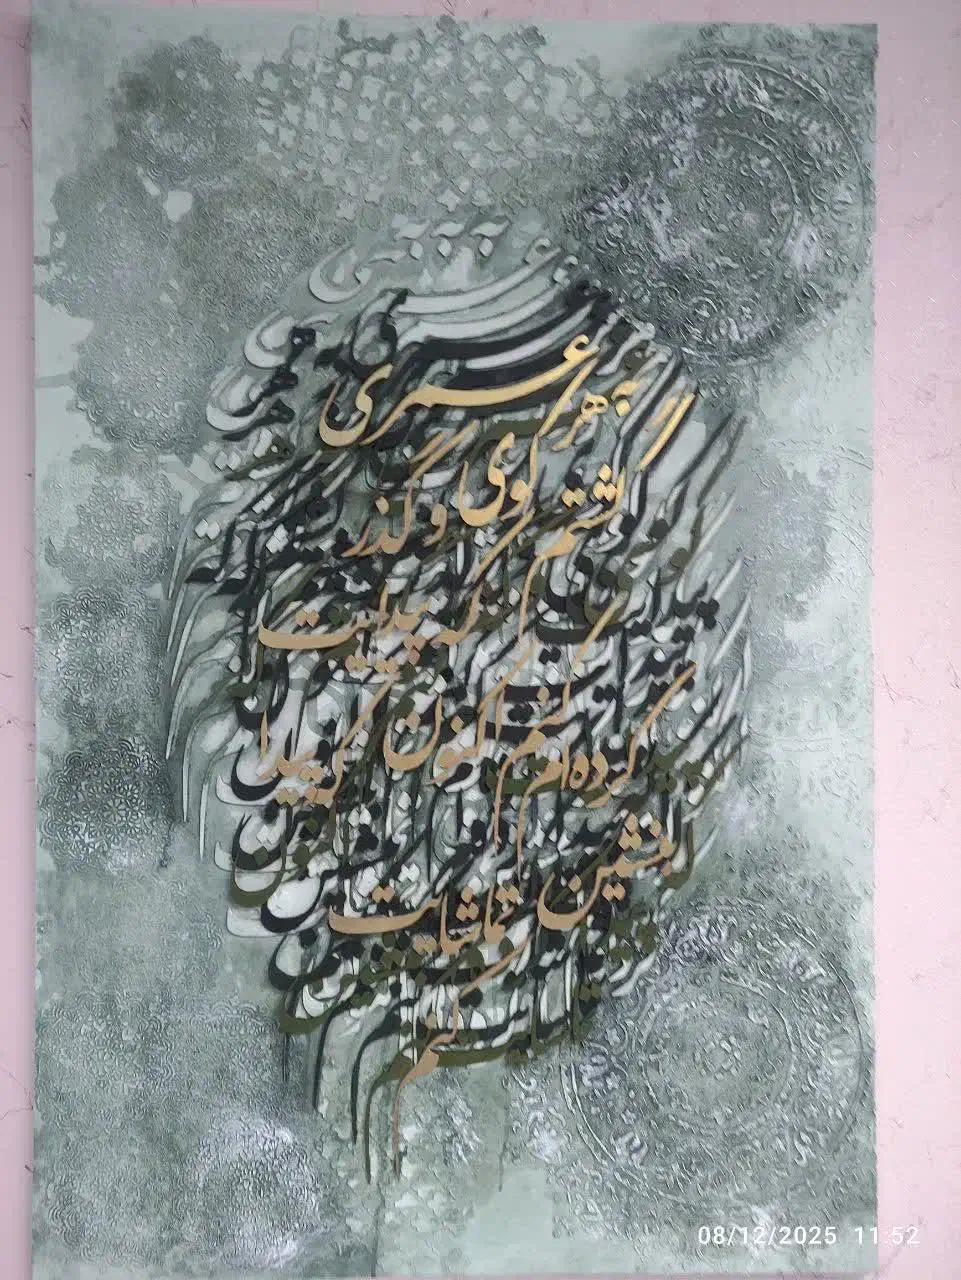 عمری به هر
کوی و گذر گشتم
که پیدایت کنم
اکنون که پیدا کرده‌ام
بنشین تماشایت
کنم
08/12/2025 11:52